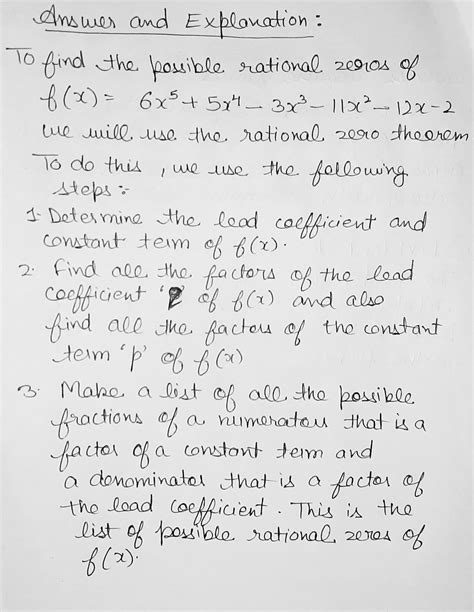 Answer and Explanation :
To find the possible rational zeros of
f(x) = 6x⁵ + 5x⁴ - 3x³ - 11x² - 12x - 2
we will use the rational zero theorem
To do this, we use the following
steps :-
1. Determine the lead coefficient and
constant term of f(x).
2. Find all the factors of the lead
coefficient 'q' of f(x) and also
find all the factors of the constant
term 'p' of f(x)
3. Make a list of all the possible
fractions of a numerator that is a
factor of a constant term and
a denominator that is a factor of
the lead coefficient. This is the
list of possible rational zeros of
f(x).